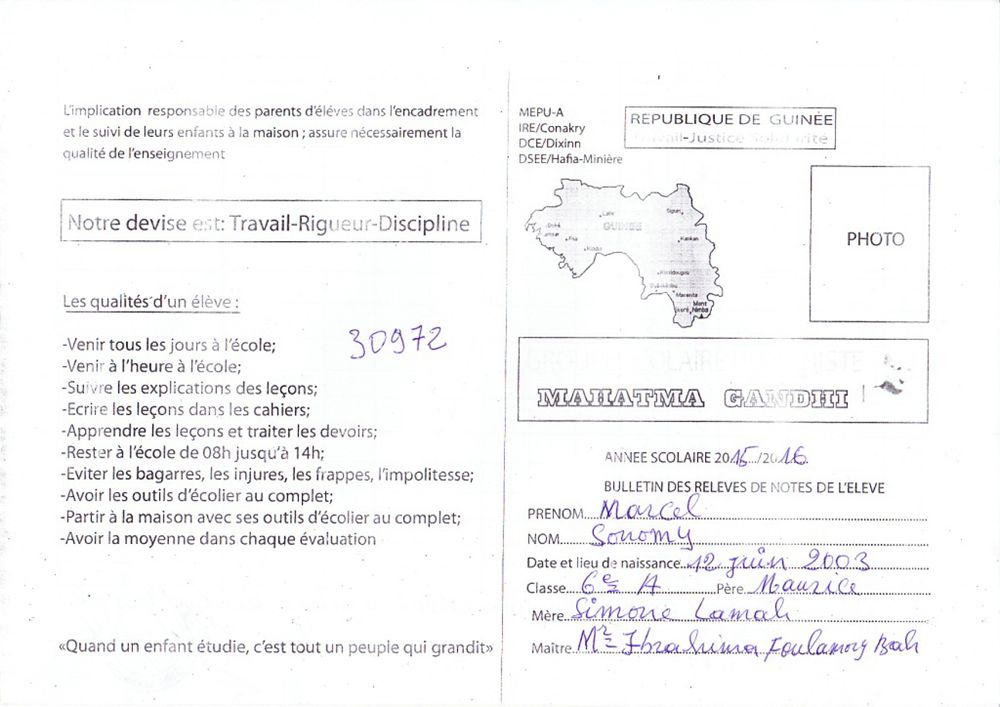 L'implication responsable des parents d'éléves dans l'encadrement
et le suivi de leurs enfants à la maison ; assure nécessairement la
qualité de l'enseignement
Notre devise est: Travail-Rigueur-Discipline
Les qualités d'un élève :
30972
-Venir tous les jours à l'école;
-Venir à l'heure à l'école;
-Suivre les explications des leçons;
-Ecrire les leçons dans les cahiers;
-Apprendre les leçons et traiter les devoirs;
-Rester à l'école de 08h jusqu'à 14h;
-Eviter les bagarres, les injures, les frappes, l'impolitesse;
-Avoir les outils d'écolier au complet;
-Partir à la maison avec ses outils d'écolier au complet;
-Avoir la moyenne dans chaque évaluation
«Quand un enfant étudie, c'est tout un peuple qui grandit»
MEPU-A
IRE/Conakry
DCE/Dixinn
DSEE/Hafia-Minière
REPUBLIQUE DE GUINÉE
Travail-Justice Solidarité
PHOTO
Labé
Siguiri
GUINEE
Boké
Fria
Kindia
Kankan
Kissidougou
Macenta
Mont
Nimba
GROUPE SCOLAIRE
MAHATMA GANDHI
ANNEE SCOLAIRE 2015../2016
BULLETIN DES RELEVES DE NOTES DE L'ELEVE
PRENOM... Marcel
NOM... Sonomy
Date et lieu de naissance... 12 juin 2003
Classe... 6e A Père... Maurice
Mère... Simone Lamah
Maître... Mr Ibrahima Foulamory Bah